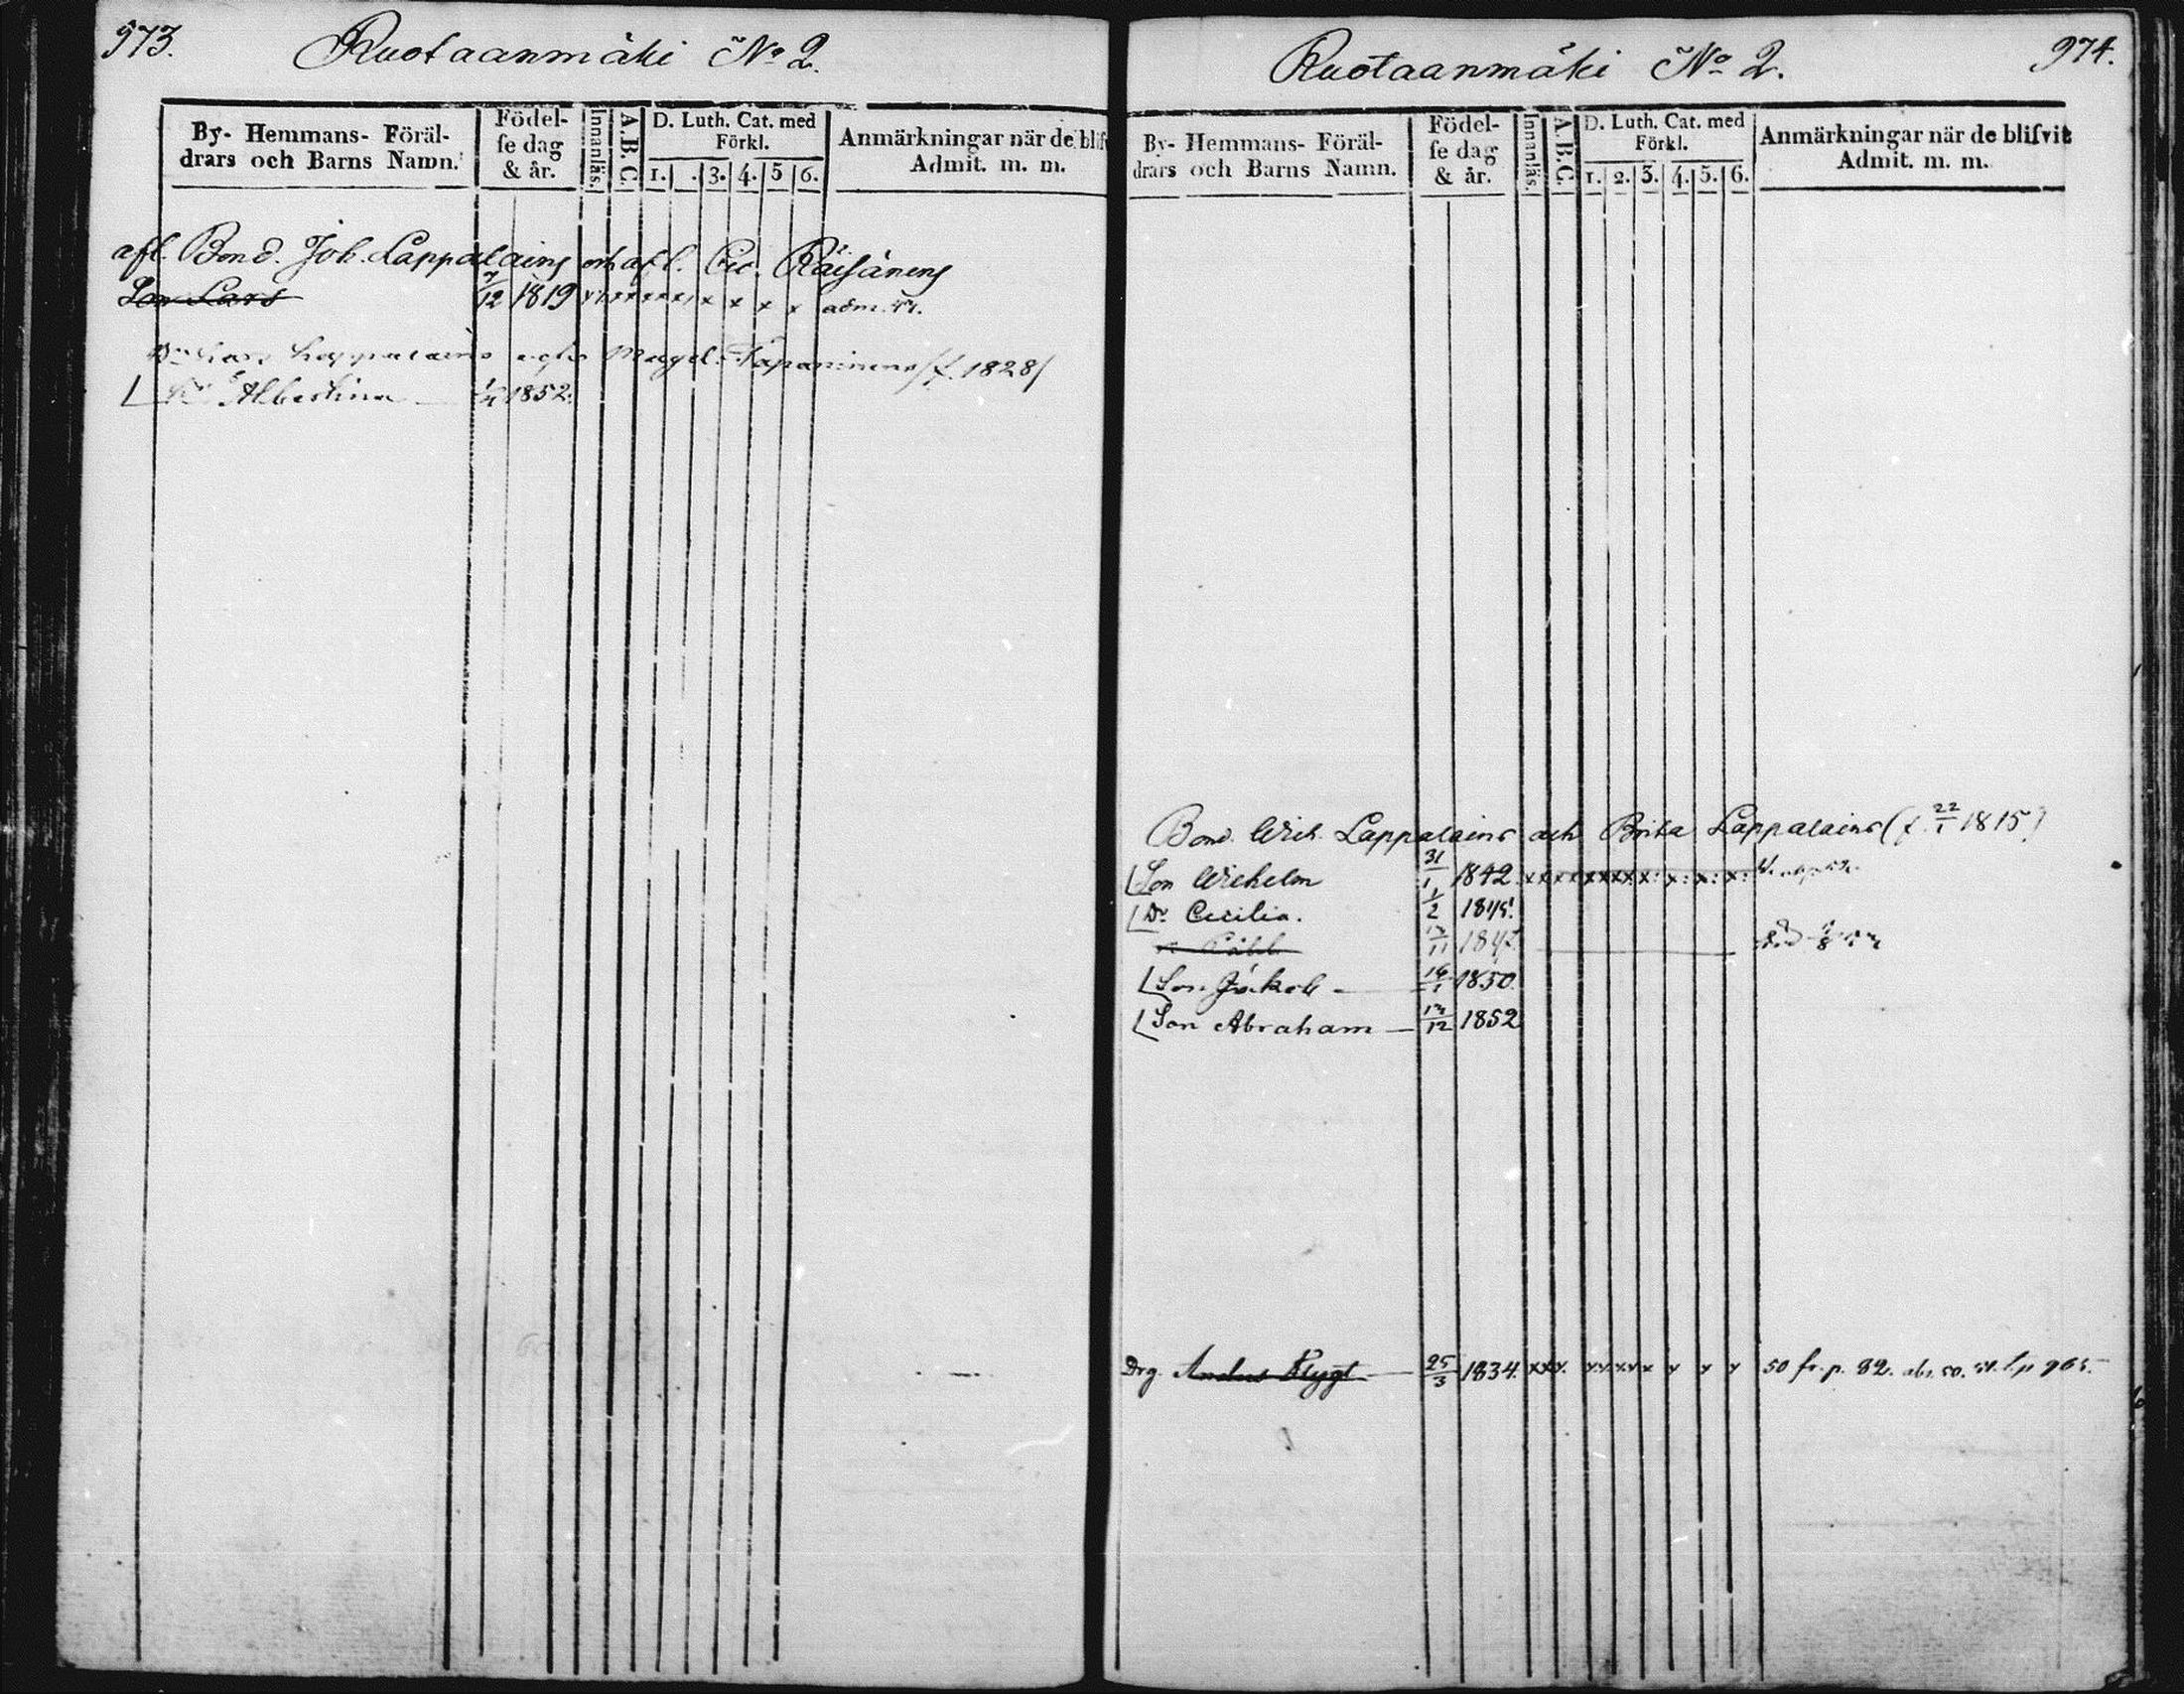 973.
Ruotaanmäki No 2.
By- Hemmans- Föräl-
drars och Barns Namn.
Födel-
se dag
& år.
Innanläs.
A.B.C.
D. Luth. Cat. med
Förkl.
1. . 3. 4. 5 6.
Anmärkningar när de blif
Admit. m. m.
afl. Bond. Joh. Lappalains och afl. Räisänens
Son Lars 7/12 1819 x x x x adm.
Lars Lappalains Magd. Tapaninens /f. 1828/
Albertina 1852.
974.
Ruotaanmäki No 2.
By- Hemmans- Föräl-
drars och Barns Namn.
Födel-
se dag
& år.
Innanläs.
A.B.C.
D. Luth. Cat. med
Förkl.
1. 2. 3. 4. 5. 6.
Anmärkningar när de blifvit
Admit. m. m.
Bond. Wilh. Lappalains och Brita Lappalains (f. 22/1 1815)
Son Wilhelm 31/1 1842 xxxx xxxxx x: x: x: x:
Dr Cecilia. 1/2 1845.
Son Jakob 16/1 1850.
Son Abraham 1852
Drg. Anders Flygt 25/3 1834. xxx. x x x 50 fr. p. 82.